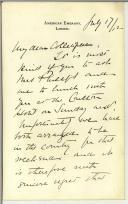 AMERICAN EMBASSY,
LONDON.
July 17/12
My dear Colleague,
It is most
kind of you to ask
Mrs and
me to lunch with
you at the Carlton
Hotel on Sunday next.
Unfortunately we have
both arranged to be
in the country for the
weekend and it
is therefore with
sincere regret that